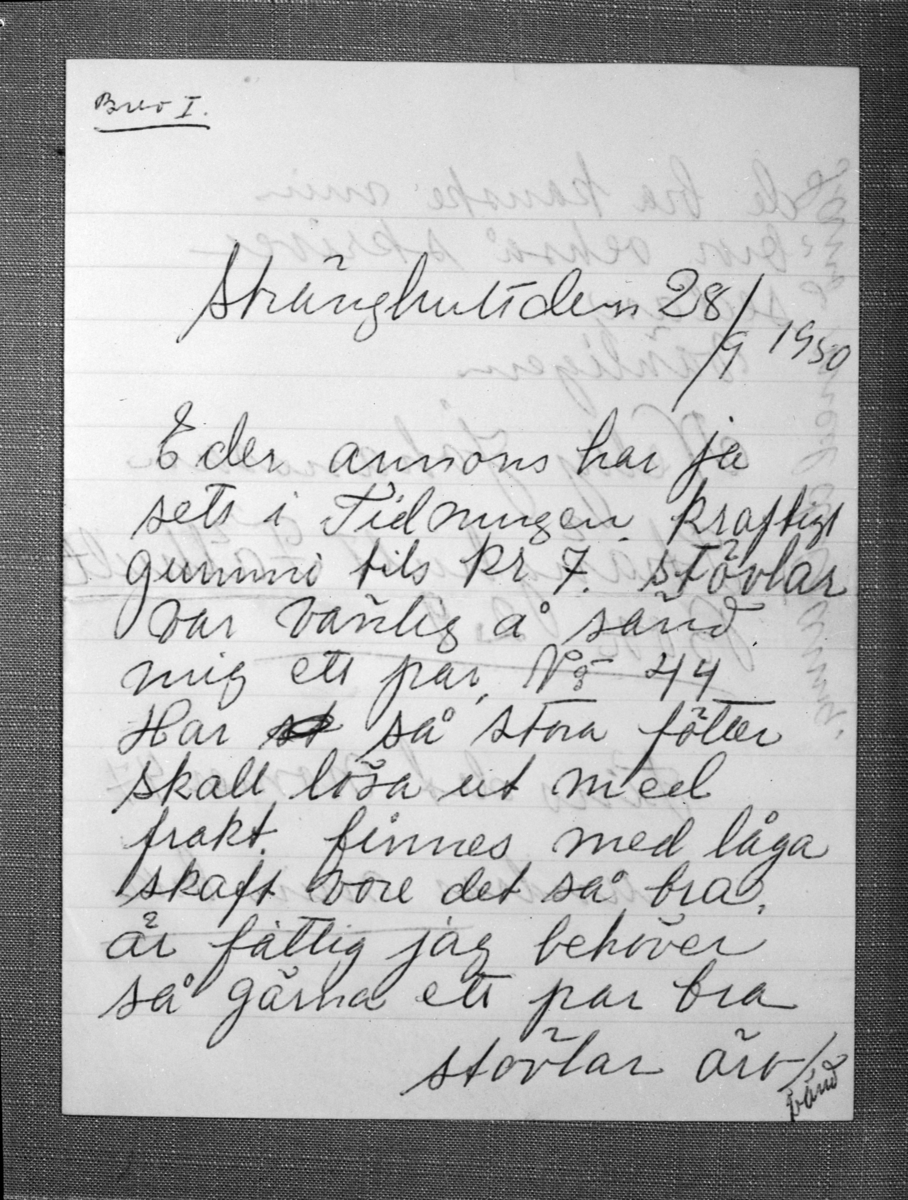 Brev I.
Stränghult den 28/9 1950
Eder annons har ja
sets i Tidningen. kraftigt
gummi tils kr 7. stövlar
var vänlig å sänd.
mig ett par, No 44
Har så stora fötter
skall lösa ut med
frakt. finnes med låga
skaft vore det så bra,
är fattig jag behöver
så gärna ett par bra
stövlar ärv/
vänd